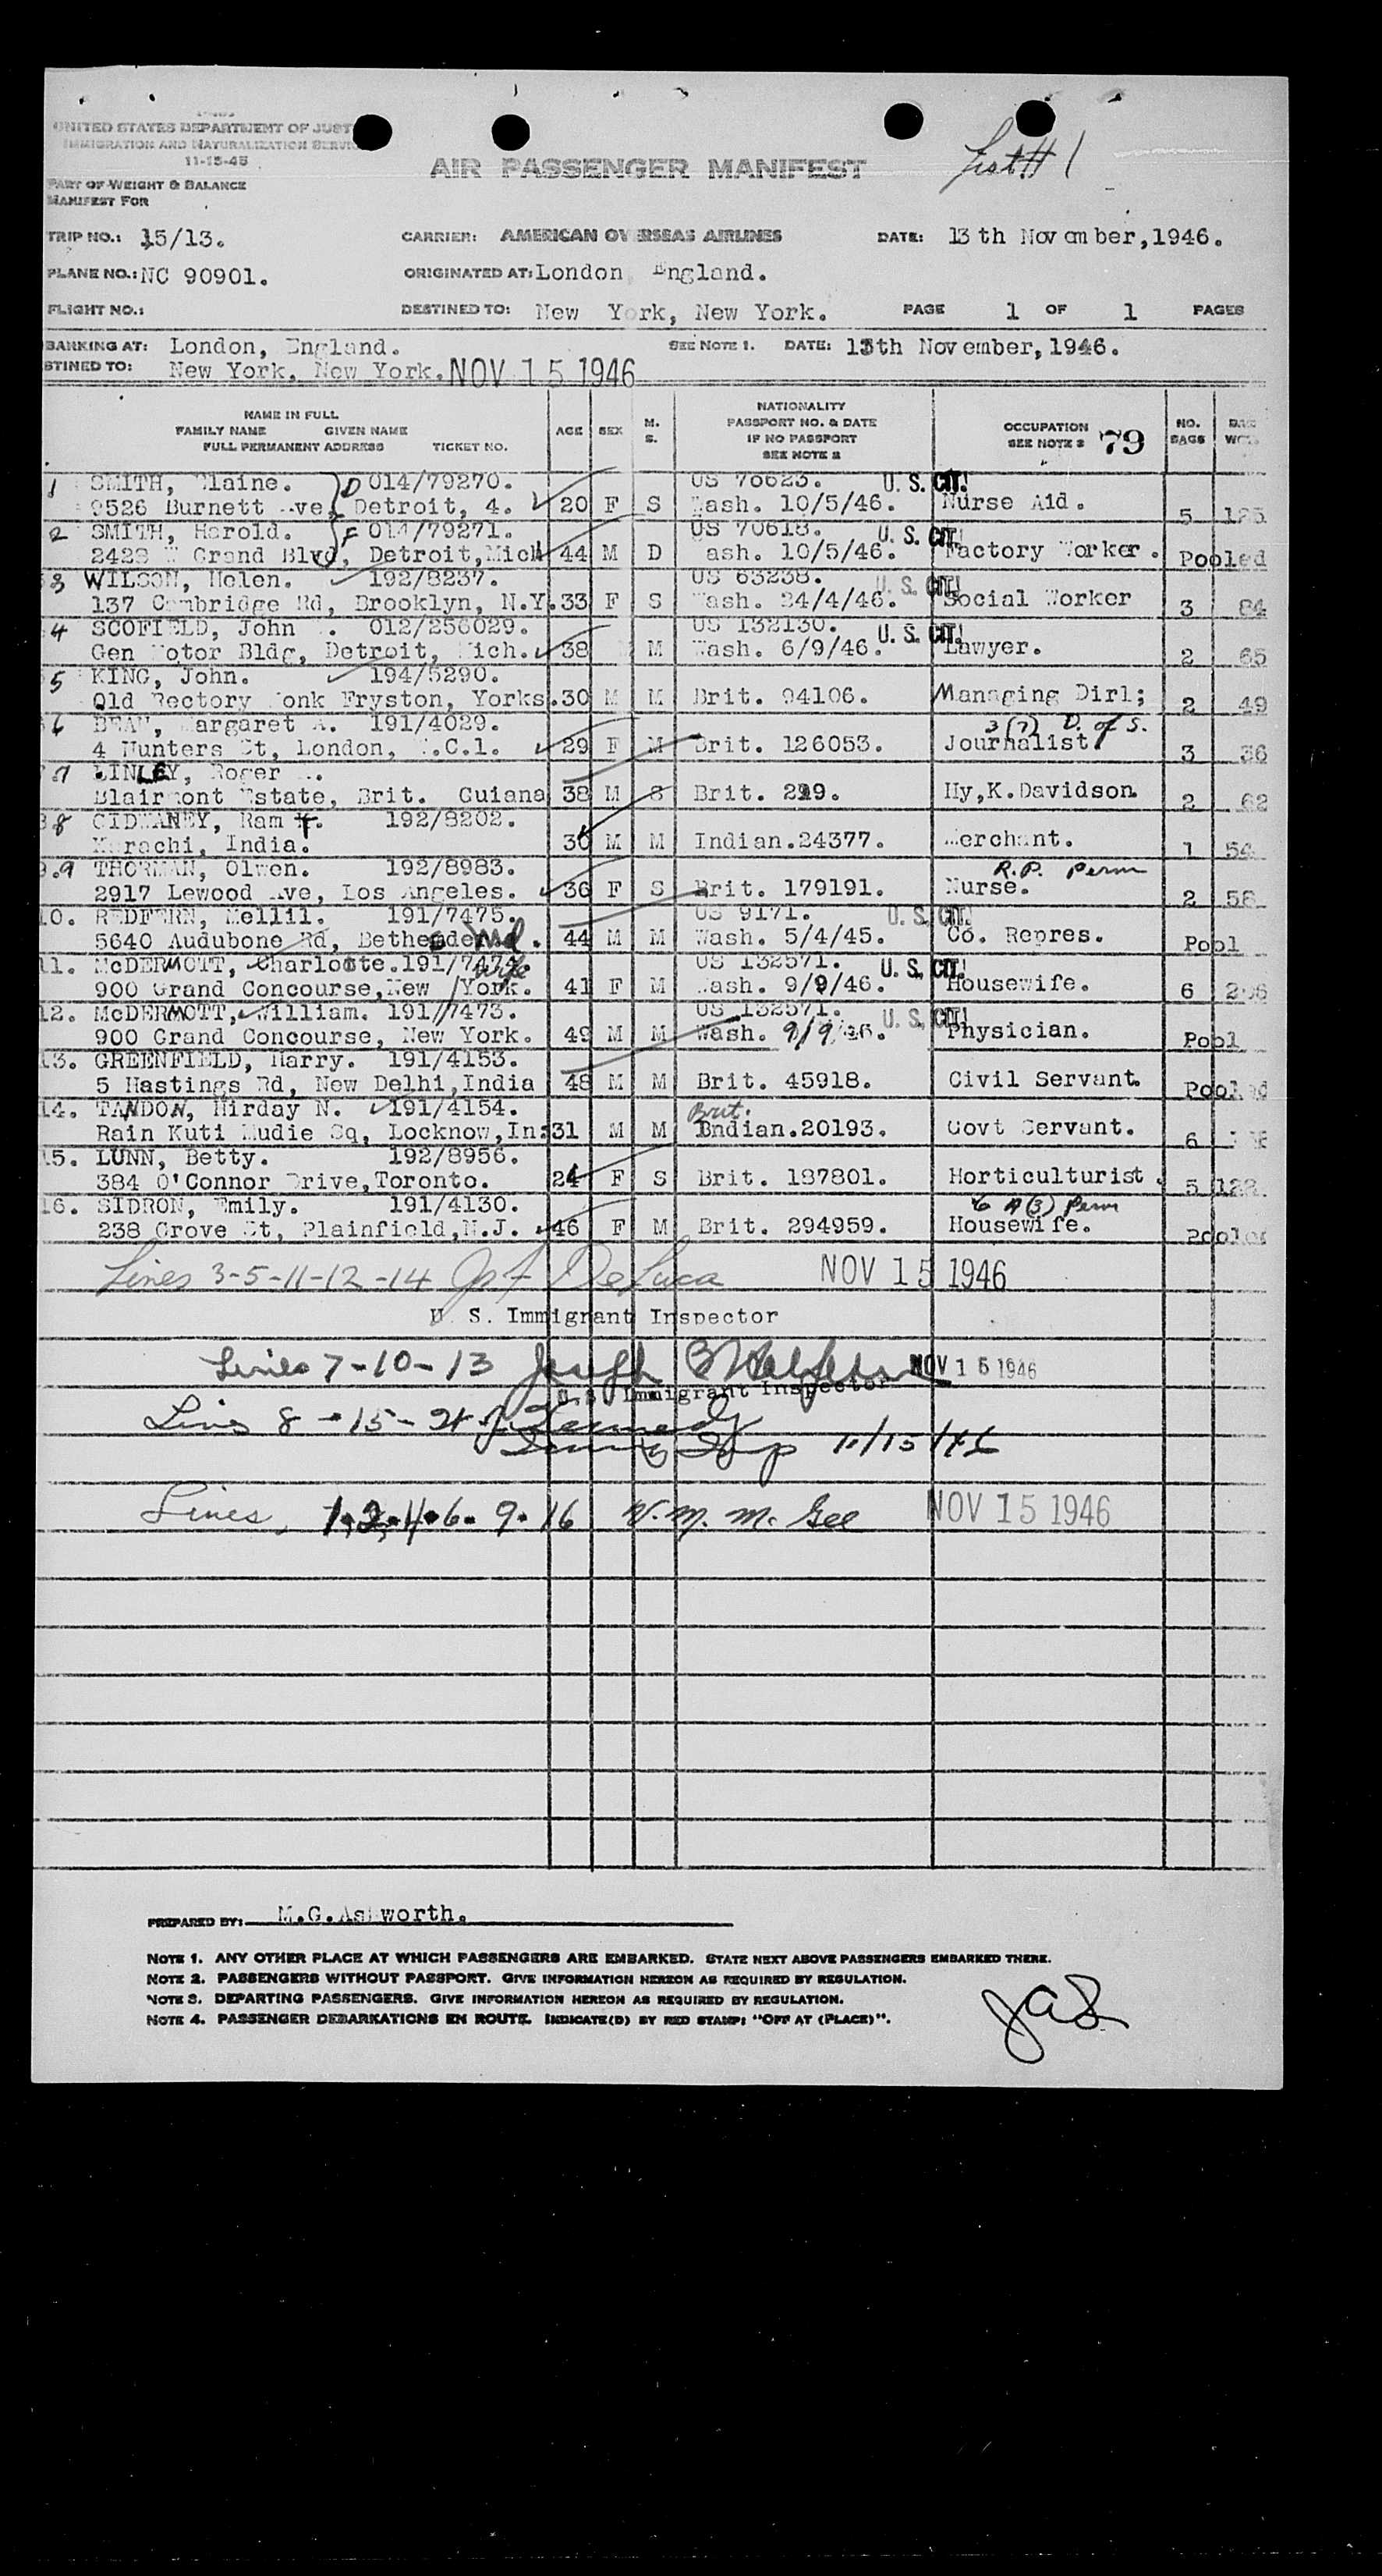 UNITED STATES DEPARTMENT OF JUST
IMMIGRATION AND NATURALIZATION SERVIC
11-15-45
AIR PASSENGER MANIFEST
List # 1
PART OF WEIGHT & BALANCE
MANIFEST FOR
TRIP NO.: 15/13. CARRIER: AMERICAN OVERSEAS AIRLINES DATE: 13 th November, 1946.
PLANE NO.: NC 90901. ORIGINATED AT: London England.
FLIGHT NO.: DESTINED TO: New York, New York. PAGE 1 OF 1 PAGES
BARKING AT: London, England. SEE NOTE 1. DATE: 13th November, 1946.
STINED TO: New York, New York. NOV 15 1946
NAME IN FULL
FAMILY NAME GIVEN NAME
FULL PERMANENT ADDRESS TICKET NO.
AGE SEX M. S.
NATIONALITY
PASSPORT NO. & DATE
IF NO PASSPORT
SEE NOTE 2
OCCUPATION
SEE NOTE 3 79
NO. BAGS
1 SMITH, Elaine. D 014/79270. US 70623. U. S. CIT.
9526 Burnett Ave, Detroit, 4. 20 F S Wash. 10/5/46. Nurse Aid. 5 125
2 SMITH, Harold. F 014/79271. US 70618. U. S. CIT.
2429 W Grand Blvd, Detroit, Mich 44 M D Wash. 10/5/46. Factory Worker. Pooled
3 WILSON, Helen. 192/8237. US 63238. U. S. CIT.
137 Cambridge Rd, Brooklyn, N.Y. 33 F S Wash. 24/4/46. Social Worker 3 84
4 SCOFIELD, John . 012/256029. US 132130. U. S. CIT.
Gen Motor Bldg, Detroit, Mich. 38 M Wash. 6/9/46. Lawyer. 2 65
5 KING, John. 194/5290.
Old Rectory Monk Fryston, Yorks. 30 M M Brit. 94106. Managing Dir1; 2 49
6 BEAN, Margaret A. 191/4029. 3(7) D. of S.
4 Hunters St, London, W.C.1. 29 F M Brit. 126053. Journalist 3 36
7 LINLEY, Roger
Blairmont Estate, Brit. Guiana 38 M S Brit. 229. Hy,K.Davidson 2 62
8 GIDWANEY, Ram T. 192/8202.
Karachi, India. 30 M M Indian.24377. Merchant. 1 54
9 THORMAN, Olwen. 192/8983. R.P. Perm
2917 Lewood Ave, Los Angeles. 36 F S Brit. 179191. Nurse. 2 58
10. REDFERN, Mellil. 191/7475. US 9171. U. S. CIT.
5640 Audubone Rd, Bethesda Md. 44 M M Wash. 5/4/45. Co. Repres. Pool
11. McDERMOTT, Charlotte. 191/7474. wife US 132571. U. S. CIT.
900 Grand Concourse, New York. 41 F M Wash. 9/9/46. Housewife. 6
12. McDERMOTT, William. 191/7473. US 132571. U. S. CIT.
900 Grand Concourse, New York. 49 M M Wash. 9/9/46. Physician. Pool
13. GREENFIELD, Harry. 191/4153.
5 Hastings Rd, New Delhi, India 48 M M Brit. 45918. Civil Servant. Pooled
14. TANDON, Hirday N. 191/4154. Brit.
Rain Kuti Mudie Sq, Locknow, In: 31 M M Indian.20193. Govt Servant. 6
15. LUNN, Betty. 192/8956.
384 O'Connor Drive, Toronto. 24 F S Brit. 187801. Horticulturist. 5 122
16. SIDRON, Emily. 191/4130. 4 A(3) Perm
238 Grove St, Plainfield, N.J. 46 F M Brit. 294959. Housewife. Pooled
Lines 3-5-11-12-14 DeLuca NOV 15 1946
U. S. Immigrant Inspector
Lines 7-10-13 Joseph NOV 15 1946
U.S. Immigrant Inspector
Lines 8-15- Kennedy
Immig Insp 11/15/46
Lines 1,2,4.6.9.16 NOV 15 1946
PREPARED BY: M.G.Ashworth.
NOTE 1. ANY OTHER PLACE AT WHICH PASSENGERS ARE EMBARKED. STATE NEXT ABOVE PASSENGERS EMBARKED THERE.
NOTE 2. PASSENGERS WITHOUT PASSPORT. GIVE INFORMATION HEREON AS REQUIRED BY REGULATION.
NOTE 3. DEPARTING PASSENGERS. GIVE INFORMATION HEREON AS REQUIRED BY REGULATION.
NOTE 4. PASSENGER DEBARKATIONS EN ROUTE. INDICATE(D) BY RED STAMP: "OFF AT (PLACE)".